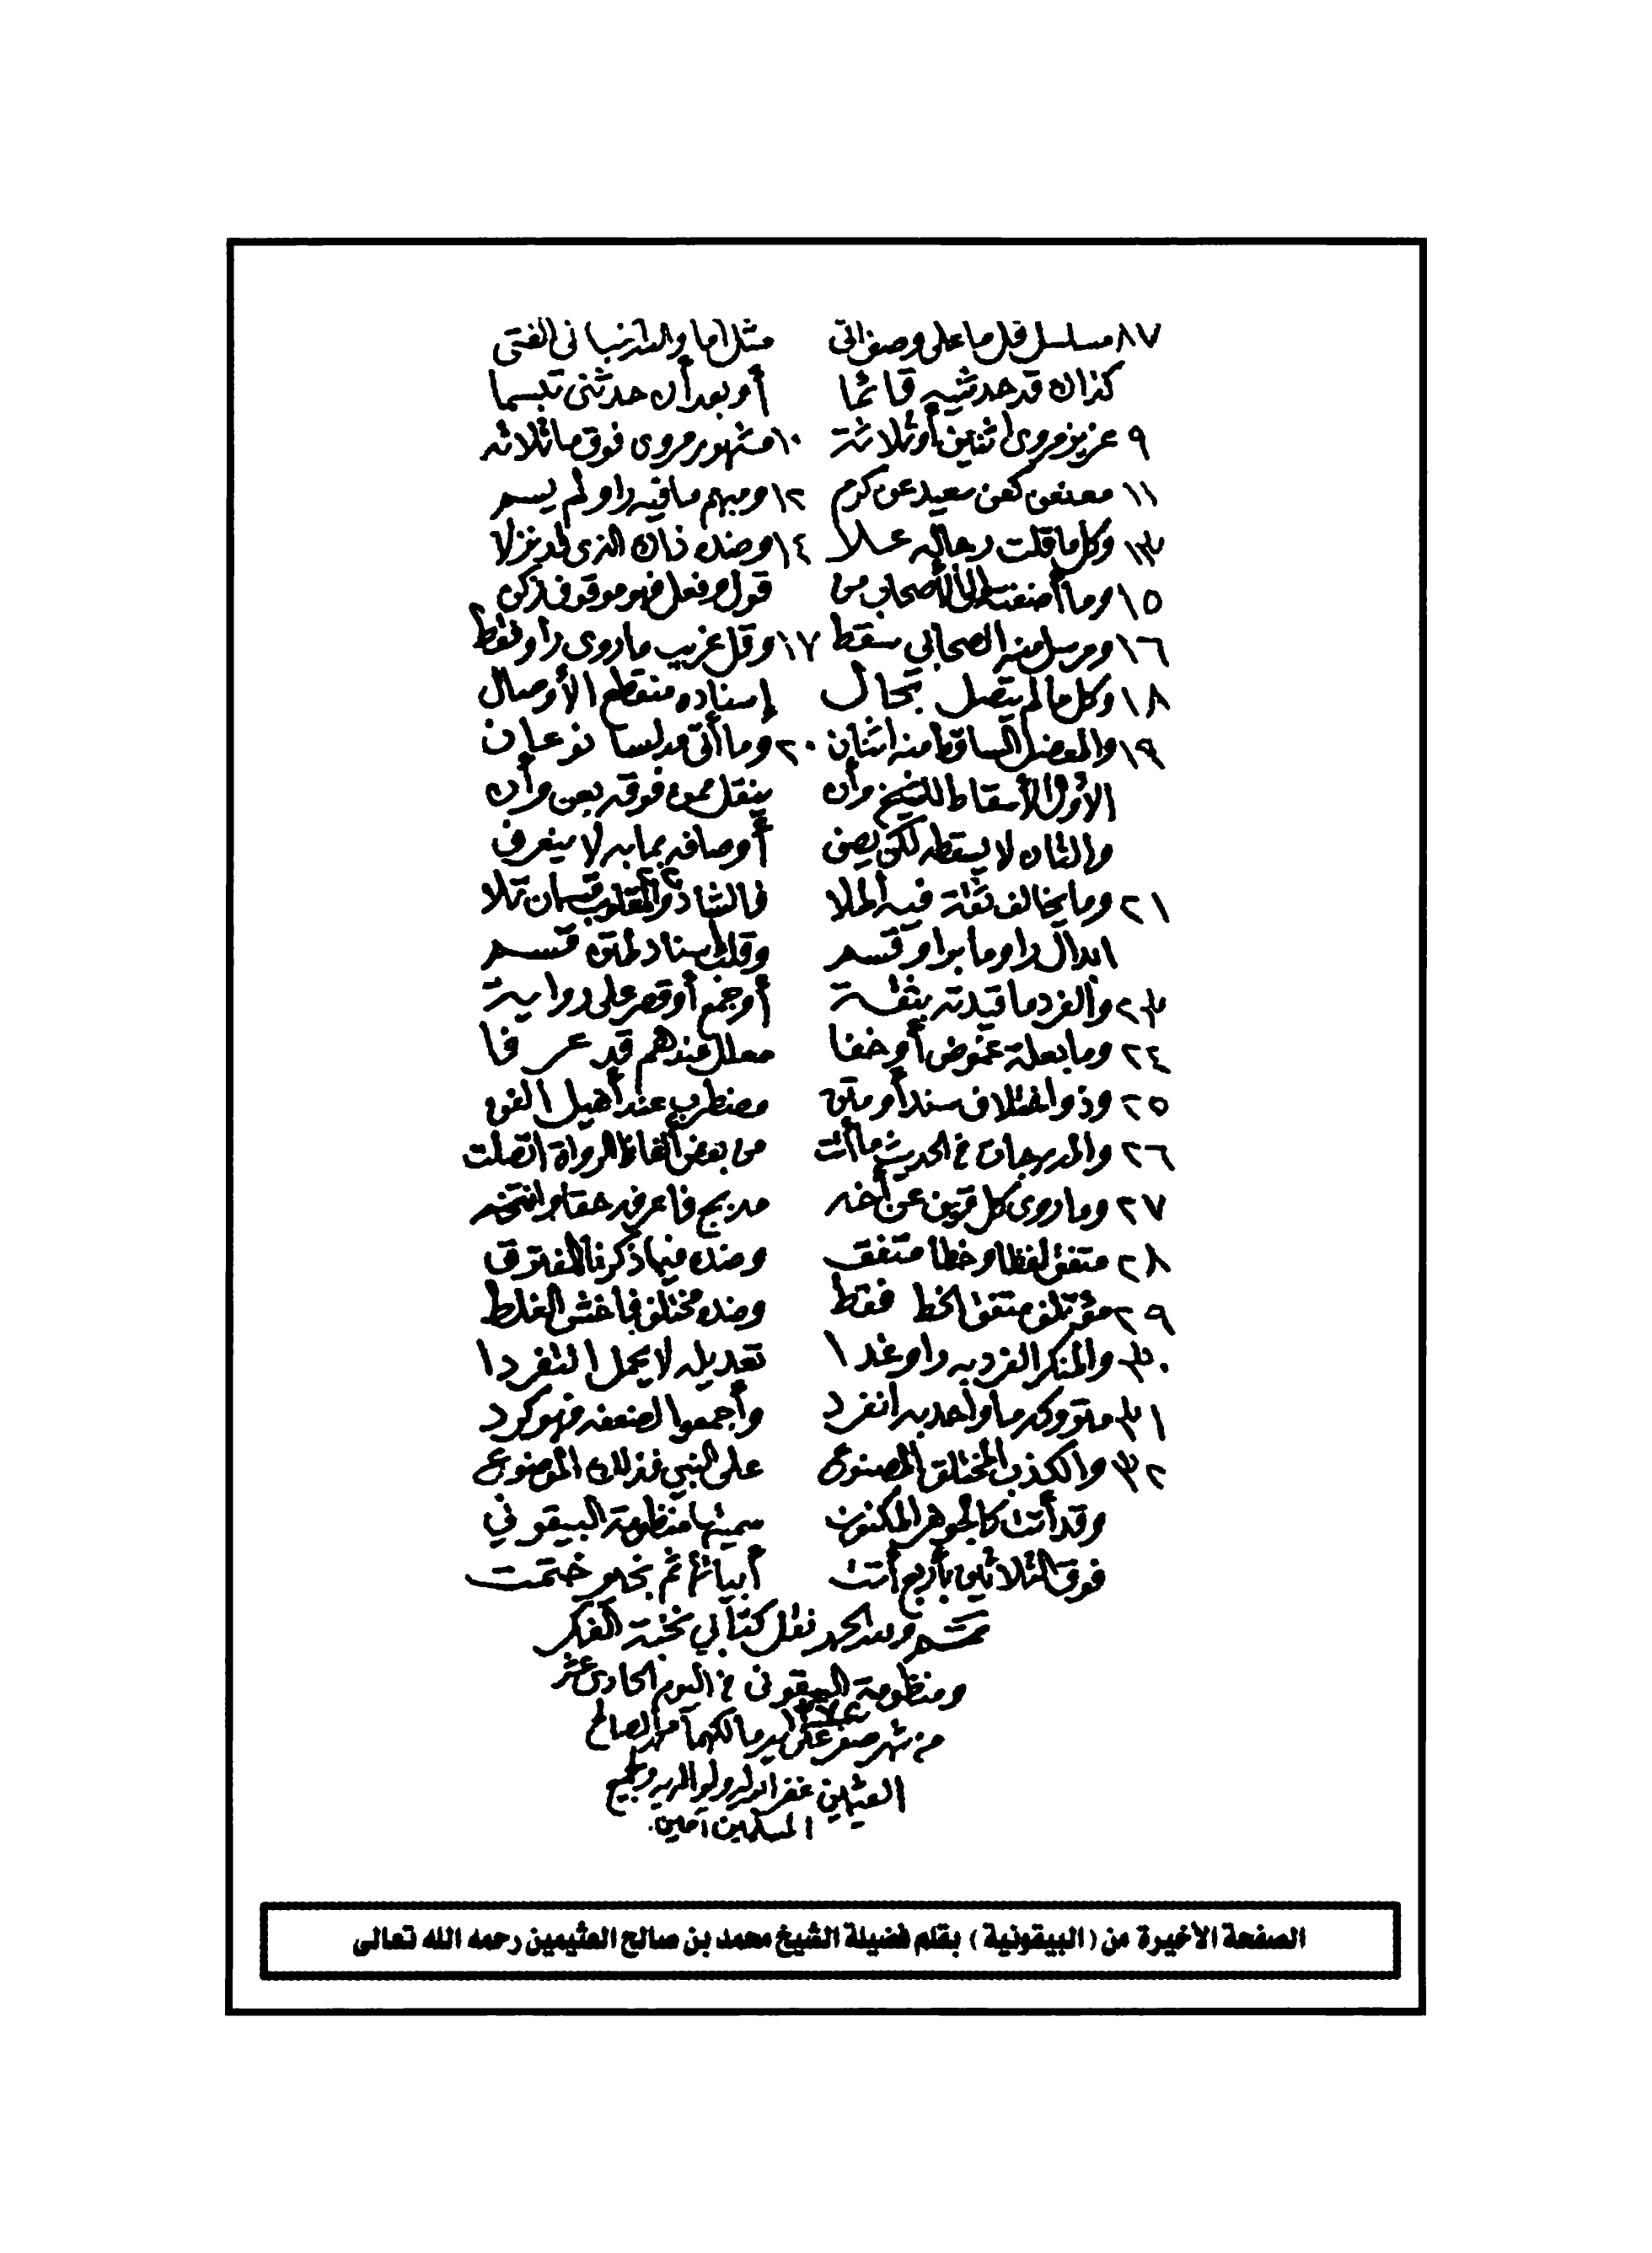 ٨٧ مسلسل قل ما على وصف أتى مثل أما والله أنبأني الفتى
كذاك قد حدثنيه قائما أو بعد أن حدثني تبسما
٩ عزيز مروي اثنين أو ثلاثة ١٠ مشهور مروي فوق ما ثلاثه
١١ معنعن كعن سعيد عن كرم ١٢ ومبهم ما فيه راو لم يسم
١٣ وكل ما قلت رجاله علا ١٤ وضده ذاك الذي قد نزلا
١٥ وما أضفته إلى الأصحاب من قول وفعل فهو موقوف زكن
١٦ ومرسل منه الصحابي سقط ١٧ وقل غريب ما روى راو فقط
١٨ وكل ما لم يتصل بحال إسناده منقطع الأوصال
١٩ والمعضل الساقط منه اثنان ٢٠ وما أتى مدلسا نوعان
الأول الإسقاط للشيخ وأن ينقل ممن فوقه بعن وأن
والثان لا يسقطه لكن يصف أوصافه بما به لا ينعرف
٢١ وما يخالف ثقة فيه الملا فالشاذ ٢٢ والمقلوب قسمان تلا
ابدال راو ما براو قسم وقلب إسناد لمتن قسم
٢٣ والفرد ما قيدته بثقة أو جمع أو قصر على رواية
٢٤ وما بعلة غموض أو خفا معلل عندهم قد عرفا
٢٥ وذو اختلاف سند أو متن مضطرب عند أهيل الفن
٢٦ والمدرجات في الحديث ما أتت من بعض ألفاظ الرواة اتصلت
٢٧ وما روى كل قرين عن أخه مدبج فاعرفه حقا وانتخه
٢٨ متفق لفظا وخطا متفق وضده فيما ذكرنا المفترق
٢٩ مؤتلف متفق الخط فقط وضده مختلف فاخش الغلط
٣٠ والمنكر الفرد به راو غدا تعديله لا يحمل التفردا
٣١ متروكه ما واحد به انفرد وأجمعوا لضعفه فهو كرد
٣٢ والكذب المختلق المصنوع على النبي فذلك الموضوع
وقد أتت كالجوهر المكنون سميتها منظومة البيقوني
فوق الثلاثين بأربع أتت أبياتها ثم بخير ختمت
تمت ولله الحمد نقل كتابي نخبة الفكر
ومنظومة البيقوني في اليوم الحادي عشر
من شهر صفر على يد مالكهما محمد الصالح
العثيمين غفر الله له ولوالديه ولجميع
المسلمين آمين.
الصفحة الأخيرة من (البيقونية) بقلم فضيلة الشيخ محمد بن صالح العثيمين رحمه الله تعالى